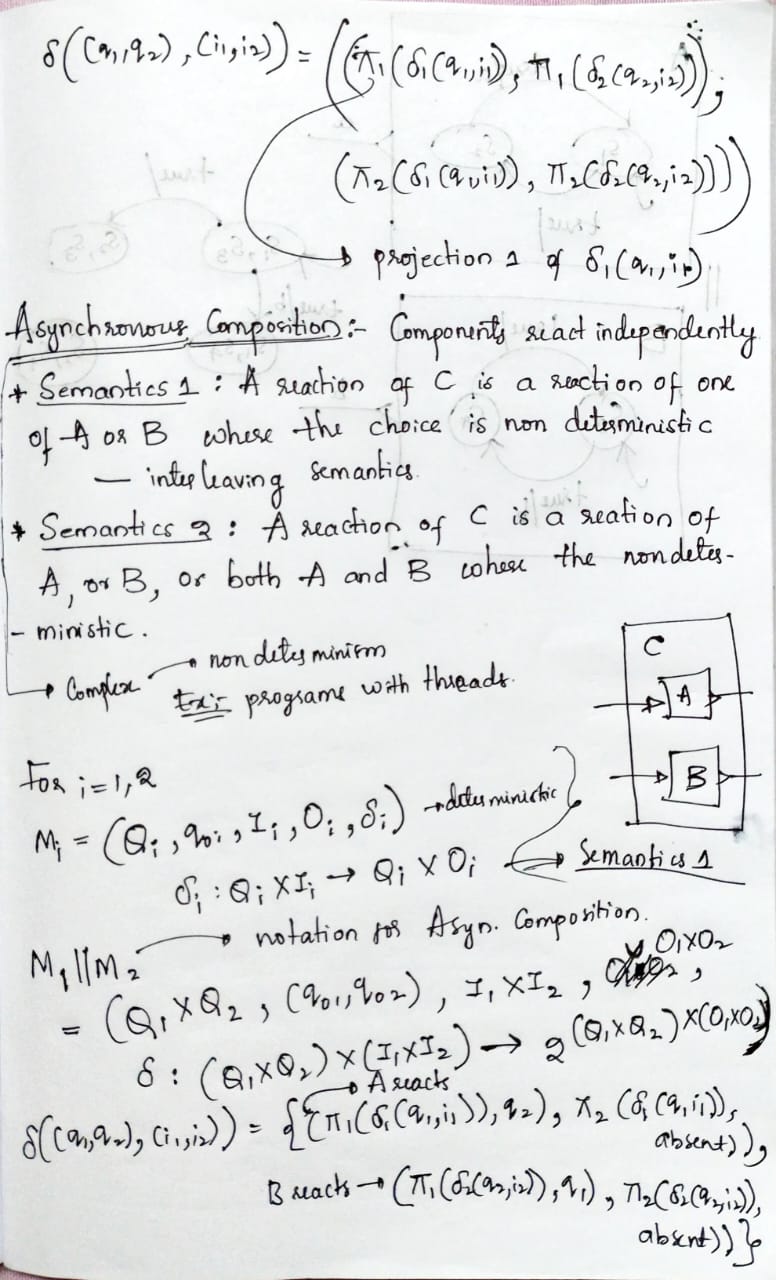 δ((q₁,q₂),(i₁,i₂)) = ((π₁(δ₁(q₁,i₁)), π₁(δ₂(q₂,i₂))),
(π₂(δ₁(q₁,i₁)), π₂(δ₂(q₂,i₂))))
→ projection 1 of δ₁(q₁,i₁)
Asynchronous Composition:- Components react independently
* Semantics 1 : A reaction of C is a reaction of one
of A or B where the choice is non deterministic
— interleaving semantics.
* Semantics 2 : A reaction of C is a reation of
A, or B, or both A and B where the nondeter-
- ministic.
→ Complex → non determinism
Ex:- programs with threads.
C
A
B
For i=1,2
Mᵢ = (Qᵢ, q₀ᵢ, Iᵢ, Oᵢ, δᵢ) → deterministic
δᵢ : Qᵢ X Iᵢ → Qᵢ X Oᵢ → Semantics 1
M₁||M₂ → notation for Asyn. Composition.
= (Q₁XQ₂, (q₀₁,q₀₂), I₁XI₂, O₁XO₂,
δ : (Q₁XQ₂)X(I₁XI₂) → 2^(Q₁XQ₂)X(O₁XO₂))
→ A reacts
δ((q₁,q₂),(i₁,i₂)) = {(π₁(δ₁(q₁,i₁)),q₂), π₂(δ₁(q₁,i₁)),
absent)),
B reacts → (π₁(δ₂(q₂,i₂)),q₁), π₂(δ₂(q₂,i₂)),
absent))}